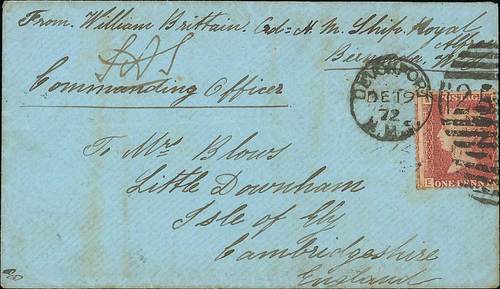 From. William Brittain. H. M. Ship. Royal
Alfred
Commanding Officer
DEVONPORT
DE 19
72
To Mrs Blows
Little Downham
Isle of Ely
Cambridgeshire
England
POSTAGE
ONE PENNY
E